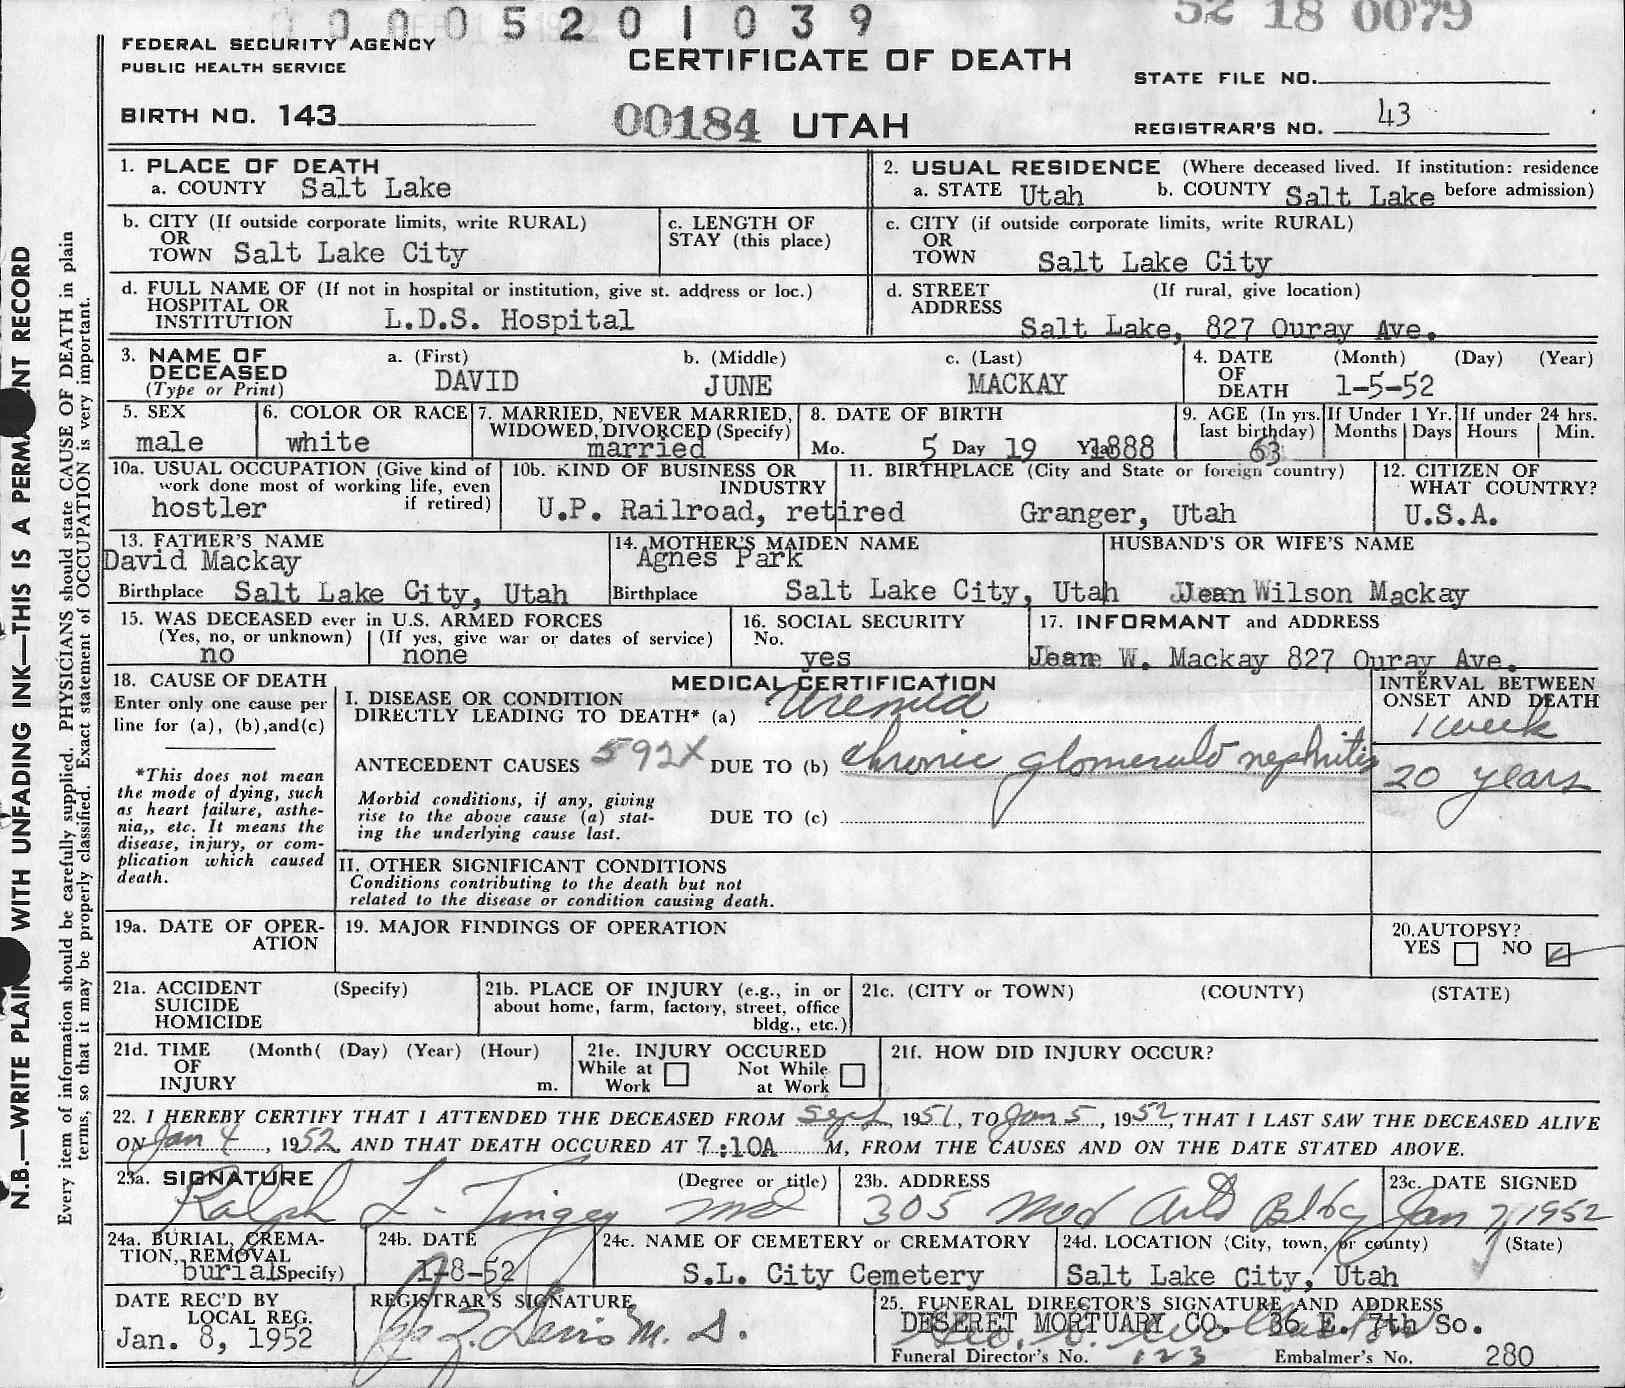 0 0 0 5 2 0 1 0 3 9
52 18 0079
FEDERAL SECURITY AGENCY
PUBLIC HEALTH SERVICE
CERTIFICATE OF DEATH
STATE FILE NO.
BIRTH NO. 143
00184 UTAH
REGISTRAR'S NO. 43
1. PLACE OF DEATH
a. COUNTY Salt Lake
2. USUAL RESIDENCE (Where deceased lived. If institution: residence
a. STATE Utah b. COUNTY Salt Lake before admission)
b. CITY (If outside corporate limits, write RURAL)
OR
TOWN Salt Lake City
c. LENGTH OF
STAY (this place)
c. CITY (if outside corporate limits, write RURAL)
OR
TOWN Salt Lake City
d. FULL NAME OF (If not in hospital or institution, give st. address or loc.)
HOSPITAL OR
INSTITUTION L.D.S. Hospital
d. STREET (If rural, give location)
ADDRESS
Salt Lake, 827 Ouray Ave.
3. NAME OF
DECEASED
(Type or Print)
a. (First)
DAVID
b. (Middle)
JUNE
c. (Last)
MACKAY
4. DATE (Month) (Day) (Year)
OF
DEATH 1-5-52
5. SEX
male
6. COLOR OR RACE
white
7. MARRIED, NEVER MARRIED,
WIDOWED, DIVORCED (Specify)
married
8. DATE OF BIRTH
Mo. 5 Day 19 Year 1888
9. AGE (In yrs.
last birthday)
63
If Under 1 Yr.
Months Days
If under 24 hrs.
Hours Min.
10a. USUAL OCCUPATION (Give kind of
work done most of working life, even
if retired)
hostler
10b. KIND OF BUSINESS OR
INDUSTRY
U.P. Railroad, retired
11. BIRTHPLACE (City and State or foreign country)
Granger, Utah
12. CITIZEN OF
WHAT COUNTRY?
U.S.A.
13. FATHER'S NAME
David Mackay
Birthplace Salt Lake City, Utah
14. MOTHER'S MAIDEN NAME
Agnes Park
Birthplace Salt Lake City, Utah
HUSBAND'S OR WIFE'S NAME
Jean Wilson Mackay
15. WAS DECEASED ever in U.S. ARMED FORCES
(Yes, no, or unknown) (If yes, give war or dates of service)
no none
16. SOCIAL SECURITY
No.
yes
17. INFORMANT and ADDRESS
Jean W. Mackay 827 Ouray Ave.
18. CAUSE OF DEATH
Enter only one cause per
line for (a), (b),and(c)
*This does not mean
the mode of dying, such
as heart failure, asthe-
nia,, etc. It means the
disease, injury, or com-
plication which caused
death.
MEDICAL CERTIFICATION
I. DISEASE OR CONDITION
DIRECTLY LEADING TO DEATH* (a) Uremia
ANTECEDENT CAUSES 592X DUE TO (b) chronic glomerulo nephritis
Morbid conditions, if any, giving
rise to the above cause (a) stat-
ing the underlying cause last.
DUE TO (c)
II. OTHER SIGNIFICANT CONDITIONS
Conditions contributing to the death but not
related to the disease or condition causing death.
INTERVAL BETWEEN
ONSET AND DEATH
1 week
20 years
19a. DATE OF OPER-
ATION
19. MAJOR FINDINGS OF OPERATION
20. AUTOPSY?
YES NO
21a. ACCIDENT (Specify)
SUICIDE
HOMICIDE
21b. PLACE OF INJURY (e.g., in or
about home, farm, factory, street, office
bldg., etc.)
21c. (CITY or TOWN) (COUNTY) (STATE)
21d. TIME (Month( (Day) (Year) (Hour)
OF
INJURY m.
21e. INJURY OCCURED
While at Not While
Work at Work
21f. HOW DID INJURY OCCUR?
22. I HEREBY CERTIFY THAT I ATTENDED THE DECEASED FROM Sept 1951, TO Jan 5, 1952, THAT I LAST SAW THE DECEASED ALIVE
ON Jan 4, 1952 AND THAT DEATH OCCURED AT 7:10A M, FROM THE CAUSES AND ON THE DATE STATED ABOVE.
23a. SIGNATURE (Degree or title)
Ralph L. Tingey md
23b. ADDRESS
305 Med Arts Bldg
23c. DATE SIGNED
Jan 7, 1952
24a. BURIAL, CREMA-
TION, REMOVAL
burial Specify)
24b. DATE
1-8-52
24c. NAME OF CEMETERY or CREMATORY
S.L. City Cemetery
24d. LOCATION (City, town, or county) (State)
Salt Lake City, Utah
DATE REC'D BY
LOCAL REG.
Jan. 8, 1952
REGISTRAR'S SIGNATURE
Davis M.D.
25. FUNERAL DIRECTOR'S SIGNATURE AND ADDRESS
DESERET MORTUARY CO. 36 E. 7th So.
Funeral Director's No. 123 Embalmer's No. 280
N.B.—WRITE PLAIN WITH UNFADING INK—THIS IS A PERMA NT RECORD
Every item of information should be carefully supplied. PHYSICIANS should state CAUSE OF DEATH in plain
terms, so that it may be properly classified. Exact statement of OCCUPATION is very important.